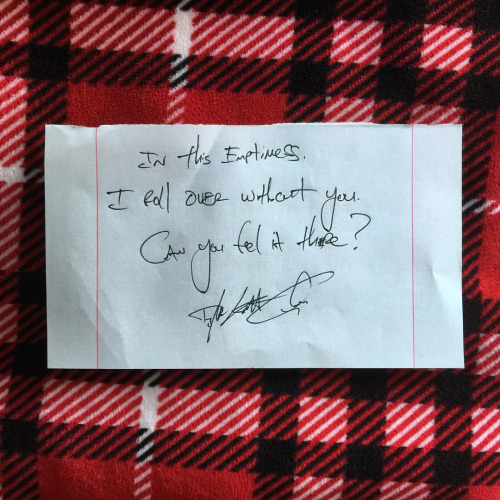 In this Emptiness.
I Roll over without you.
Can you feel it there?